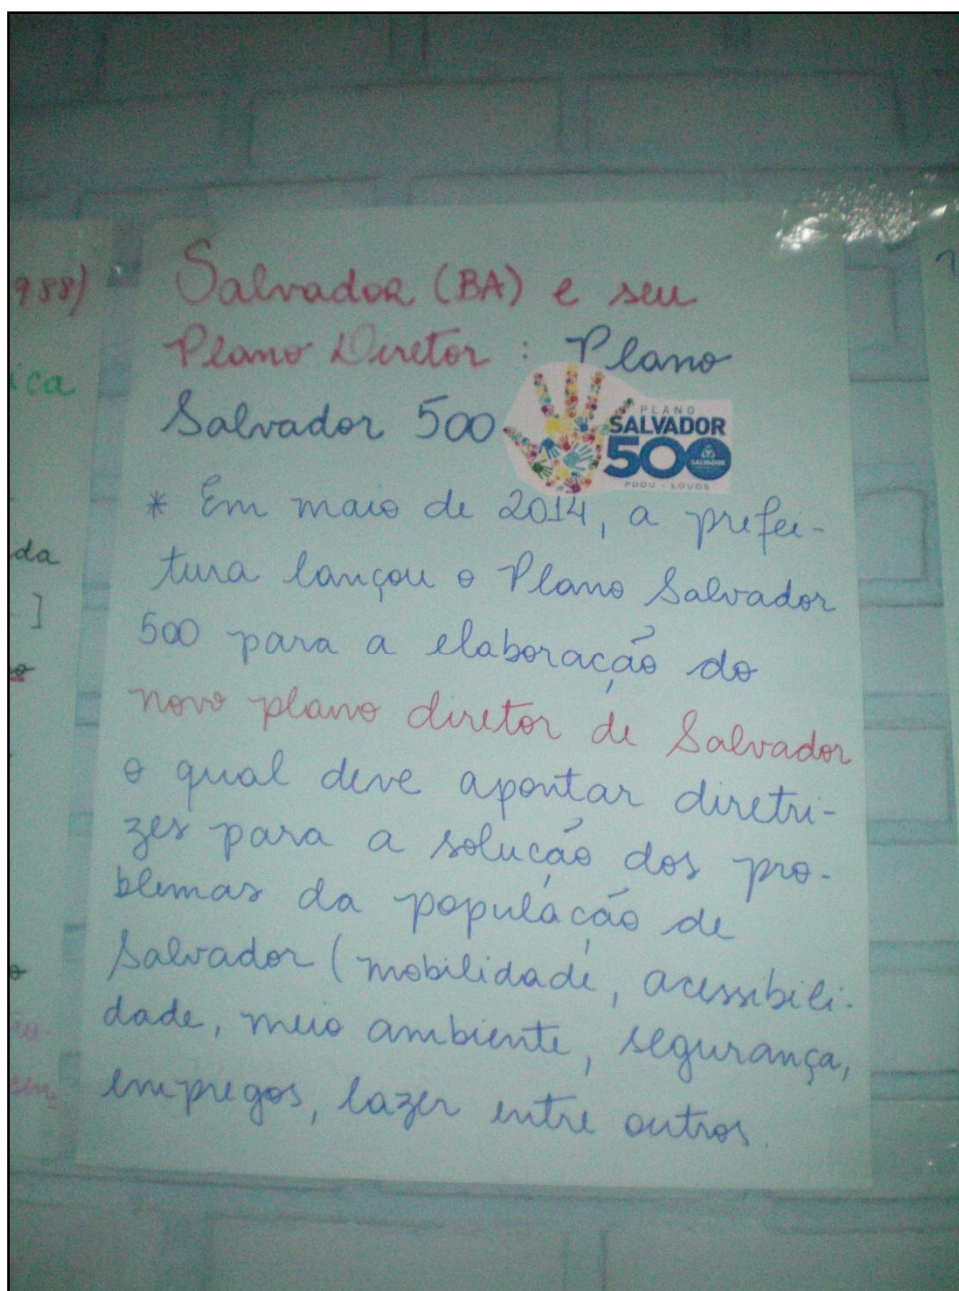 Salvador (BA) e seu
Plano Diretor : Plano
Salvador 500
PLANO
SALVADOR
500
SALVADOR
PDDU - LOUOS
* Em maio de 2014, a prefei-
tura lançou o Plano Salvador
500 para a elaboração do
novo plano diretor de Salvador
o qual deve apontar diretri-
zes para a solução dos pro-
blemas da população de
Salvador (mobilidade, acessibili-
dade, meio ambiente, segurança,
empregos, lazer entre outros.
988)
ica
da
]